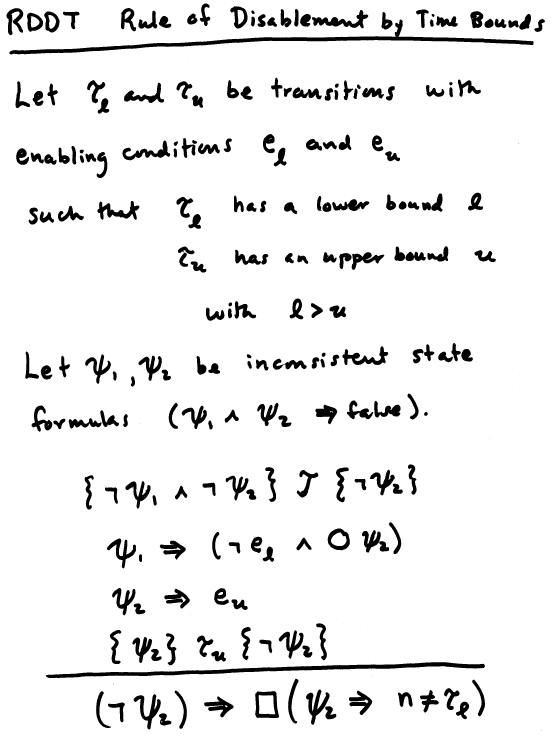 RDDT Rule of Disablement by Time Bounds
Let τₗ and τᵤ be transitions with
enabling conditions eₗ and eᵤ
such that τₗ has a lower bound l
τᵤ has an upper bound u
with l > u
Let ψ₁, ψ₂ be inconsistent state
formulas (ψ₁ ∧ ψ₂ ⇒ false).
{¬ψ₁ ∧ ¬ψ₂} 𝒯 {¬ψ₂}
ψ₁ ⇒ (¬eₗ ∧ ○ψ₂)
ψ₂ ⇒ eᵤ
{ψ₂} τᵤ {¬ψ₂}
(¬ψ₂) ⇒ □(ψ₂ ⇒ n ≠ τₗ)